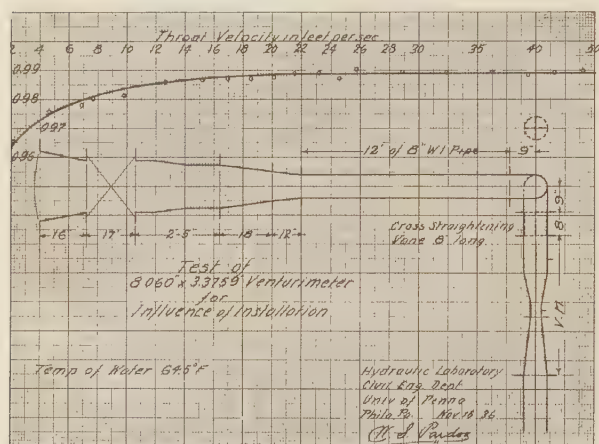 Throat Velocity in feet per sec
2 4 6 8 10 14 18 20 22 24 26 28 32 35 40 45 50
0.99
0.98
0.97
0.96
12" of 8" W.I. Pipe 9"
16" 17" 2'-5" 18" 12"
Cross Straightening
Vane 8" long.
8'-9"
V.M.
Test of
8.060" x 3.3759" Venturimeter
for
Influence of Installation
Temp of Water 64.5°F
Hydraulic Laboratory
Civil Eng. Dept
Univ of Penna
Phila. Pa. Nov 16 36
W S Pardoe